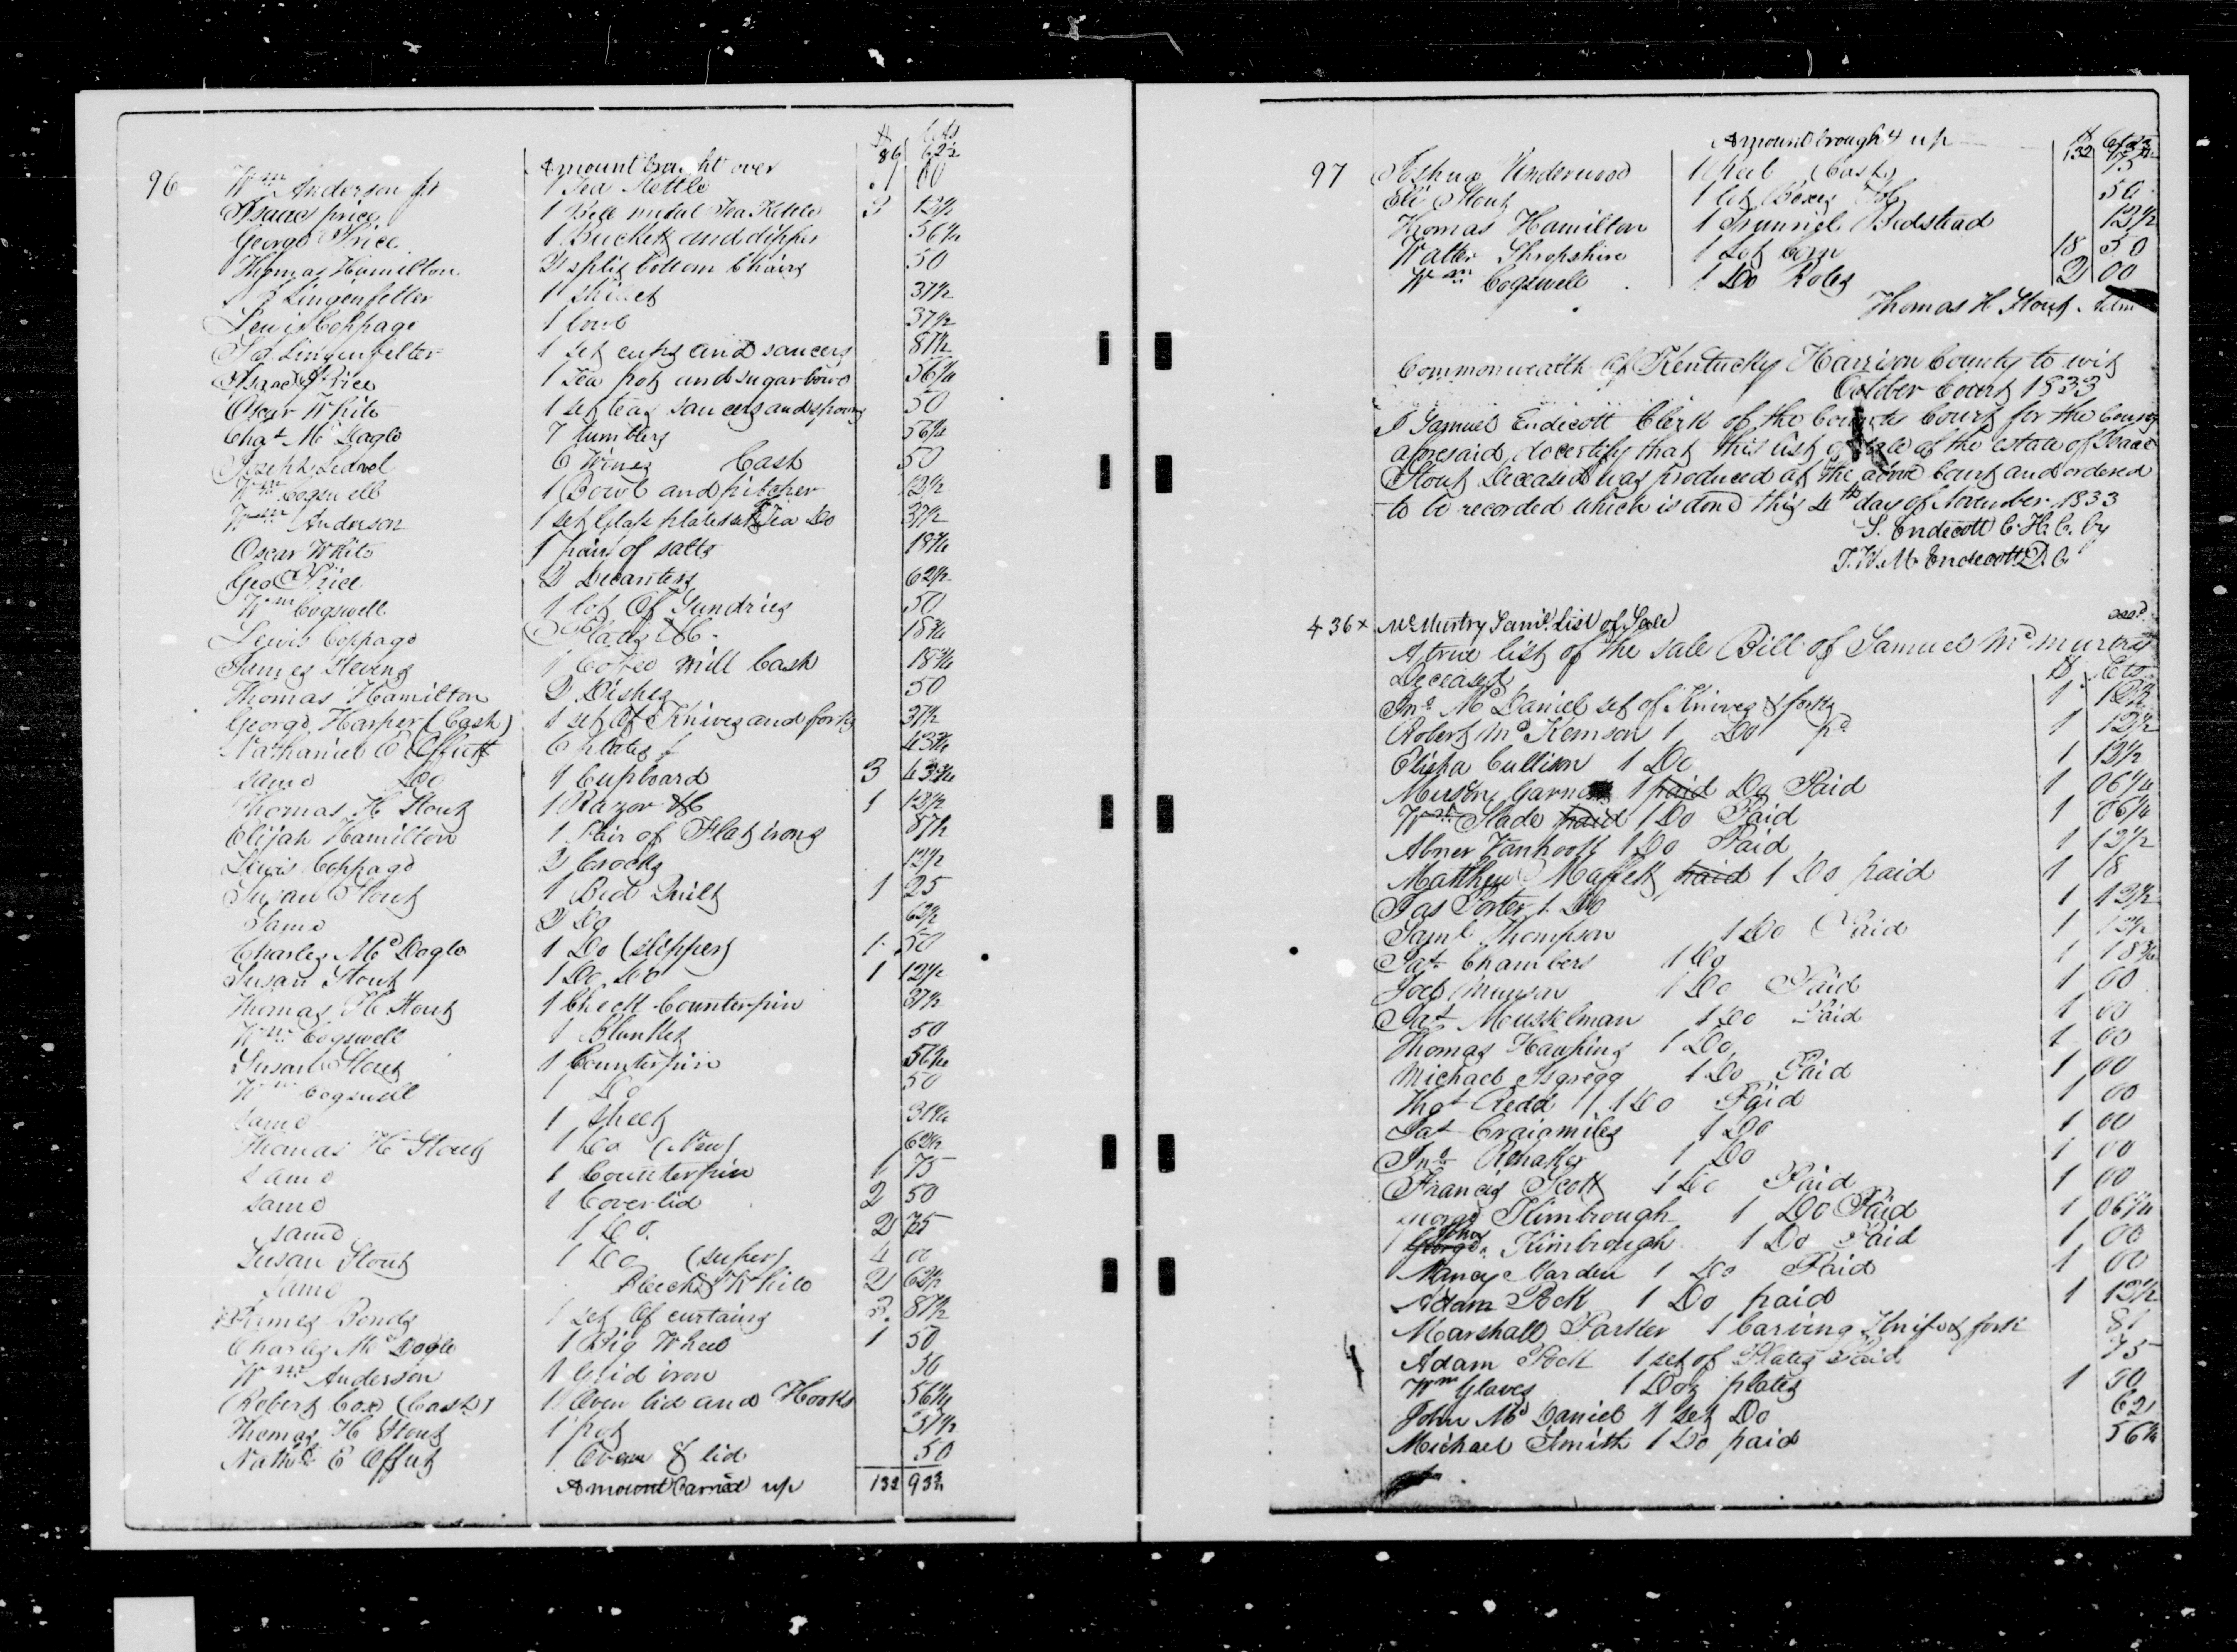 $ Cts
Amount brought over 86 62½
96 Wm Anderson Jr 1 Tea Kettle 1 00
Isaac price 1 Bell metal Tea Kettle 3 12½
George Price 1 Bucket and dipper 56¼
Thomas Hamilton 2 split bottom Chairs 50
Lingenfelter 1 Skillet 37½
Lewis Coppage 1 bowl 37½
Lingenfelter 1 set cups and saucers 87½
Isaac Price 1 Tea pot and sugar bowl 56¼
Oscar White 1 set teas saucers and spoons 50
Chas McDaglo 7 tumblers 56¼
Joseph 6 Wines Cash 50
Wm Cogswell 1 Bowl and pitcher 12½
Wm Anderson 1 set Glass plates Tea Do 37½
Oscar White 1 pair of salts 18¾
Geo Price 2 Decanters 62½
Wm Cogswell 1 lot Of Sundries 50
Lewis Coppage &C 18¾
James Stevens 1 Coffee mill Cash 18¾
Thomas Hamilton 2 Dishes 50
George Harper (Cash) 1 set Of Knives and forks 37½
Nathaniel E Offutt 6 plates 43¾
same Do 1 Cupboard 3 43¾
Thomas H Stout 1 Razor &C 1 12½
Elijah Hamilton 1 Pair of Flat irons 87½
Lewis Coppage 2 Crocks 12½
Susan Stout 1 Bed Quilt 1 25
Same 2 Do 62½
Charles McDaglo 1 Do (slipper) 1 50
Susan Stout 1 Do Do 1 12½
Thomas H Stout 1 Check Counterpin 37½
Wm Cogswell 1 Blanket 50
Susan Stout 1 Counterpin 56¼
Wm Cogswell 1 Do 50
same 1 Sheet 31¼
Thomas H Stout 1 Do (New) 62½
same 1 Counterpin 1 75
same 1 Coverlid 2 50
same 1 Do. 2 75
Susan Stout 1 Do (super) 4 00
Same White 2 62½
James Bonds 1 set Of curtains 3 87½
Charles McDaglo 1 Big Wheel 1 50
Wm Anderson 1 Grid iron 50
Robert Cox (Cash) 1 Oven lid and Hooks 56¼
Thomas H Stout 1 pot 37½
Nathl E Offutt 1 Oven & lid 50
Amount Carried up 132 93¾
Amount brought up $ Cts
132 93¾
97 Joshua Underwood 1 Reel (Cash) 75
Eli Stout 1 lot Boxes &c 50
Thomas Hamilton 1 Trunnel Bedstead 12½
Walter Shropshire 1 Lot Corn 18 50
Wm Cogswell 1 Do Roles 2 00
Thomas H Stout Adm
Commonwealth Of Kentucky Harrison County to wit
October Court 1833
I Samuel Endicott Clerk of the County Court for the County
aforesaid do certify that this list of sale of the estate of Isaac
Stout Deceased was produced at the above court and ordered
to be recorded which is done this 4th day of November 1833
S. Endecott C.H.C. by
J.W.M. Endecott D.C.
436x McMurtry Saml. List of Sale
A true list of the sale Bill of Samuel McMurtry
Deceased $ Cts
Jno McDaniel set of Knives & forks 1 12½
Robert McKemson 1 Do pd 1 12½
Elisha Cullison 1 Do 1 12½
Garner 1 paid Do Paid 1 06¼
Wm Slade paid 1 Do Paid 1 06¼
Abner Vanhook 1 Do Paid 1 12½
Matthew Maffett paid 1 Do paid 1 18
Jas Porter 1 Do 1 12½
Saml Thompson 1 Do Paid 1 12½
Jas Chambers 1 Do 1 18¾
Joel Munson 1 Do Paid 1 00
Jas Musselman 1 Do Paid 1 00
Thomas Hawkins 1 Do 1 00
Michael Asgregg 1 Do Paid 1 00
Thos Redd 1 Do Paid 1 00
Jas Craigmiles 1 Do 1 00
Jno Renaker 1 Do 1 00
Francis Scott 1 Do Paid 1 00
George Kimbrough 1 Do Paid 1 06¼
John
George Kimbrough 1 Do Paid 1 00
Nancy Marden 1 Do Paid 1 00
Adam Pock 1 Do paid 1 12½
Marshall Parker 1 Carving Knife & fork 81
Adam Pock 1 set of Plates Paid 75
Wm Glaves 1 Doz plates 1 50
John McDaniel 1 set Do 62
Michael Smith 1 Do paid 56¼